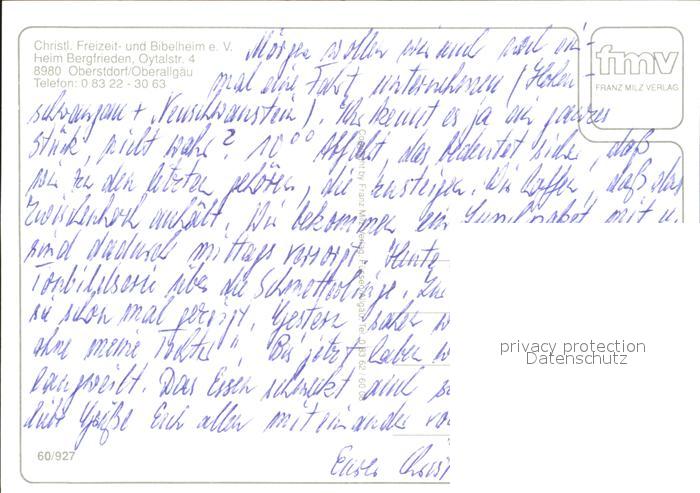 Christl. Freizeit- und Bibelheim e. V.
Heim Bergfrieden, Oytalstr. 4
8980 Oberstdorf/Oberallgäu
Telefon: 0 83 22 - 30 63
fmv
FRANZ MILZ VERLAG
Morgen wollen wir auch noch ein-
mal eine Fahrt unternehmen (Hohen-
schwangau + Neuschwanstein). Ihr kennt es ja ein ganzes
Stück, nicht wahr? 10⁰⁰ Abfahrt, das bedeutet sicher, daß
wir zu den letzten gehören, die zusteigen. Wir hoffen, daß das
Zwischenhoch anhält. Wir bekommen ein Lunchpaket mit u.
sind dadurch mittags versorgt. Heute
über die Schmetterlinge.
sie schon mal gezeigt. Gestern sahen
ohne meine Tochter" Bis jetzt haben
langweilt. Das Essen schmeckt und
liebe Grüße Euch allen miteinander
Eure
privacy protection
Datenschutz
60/927